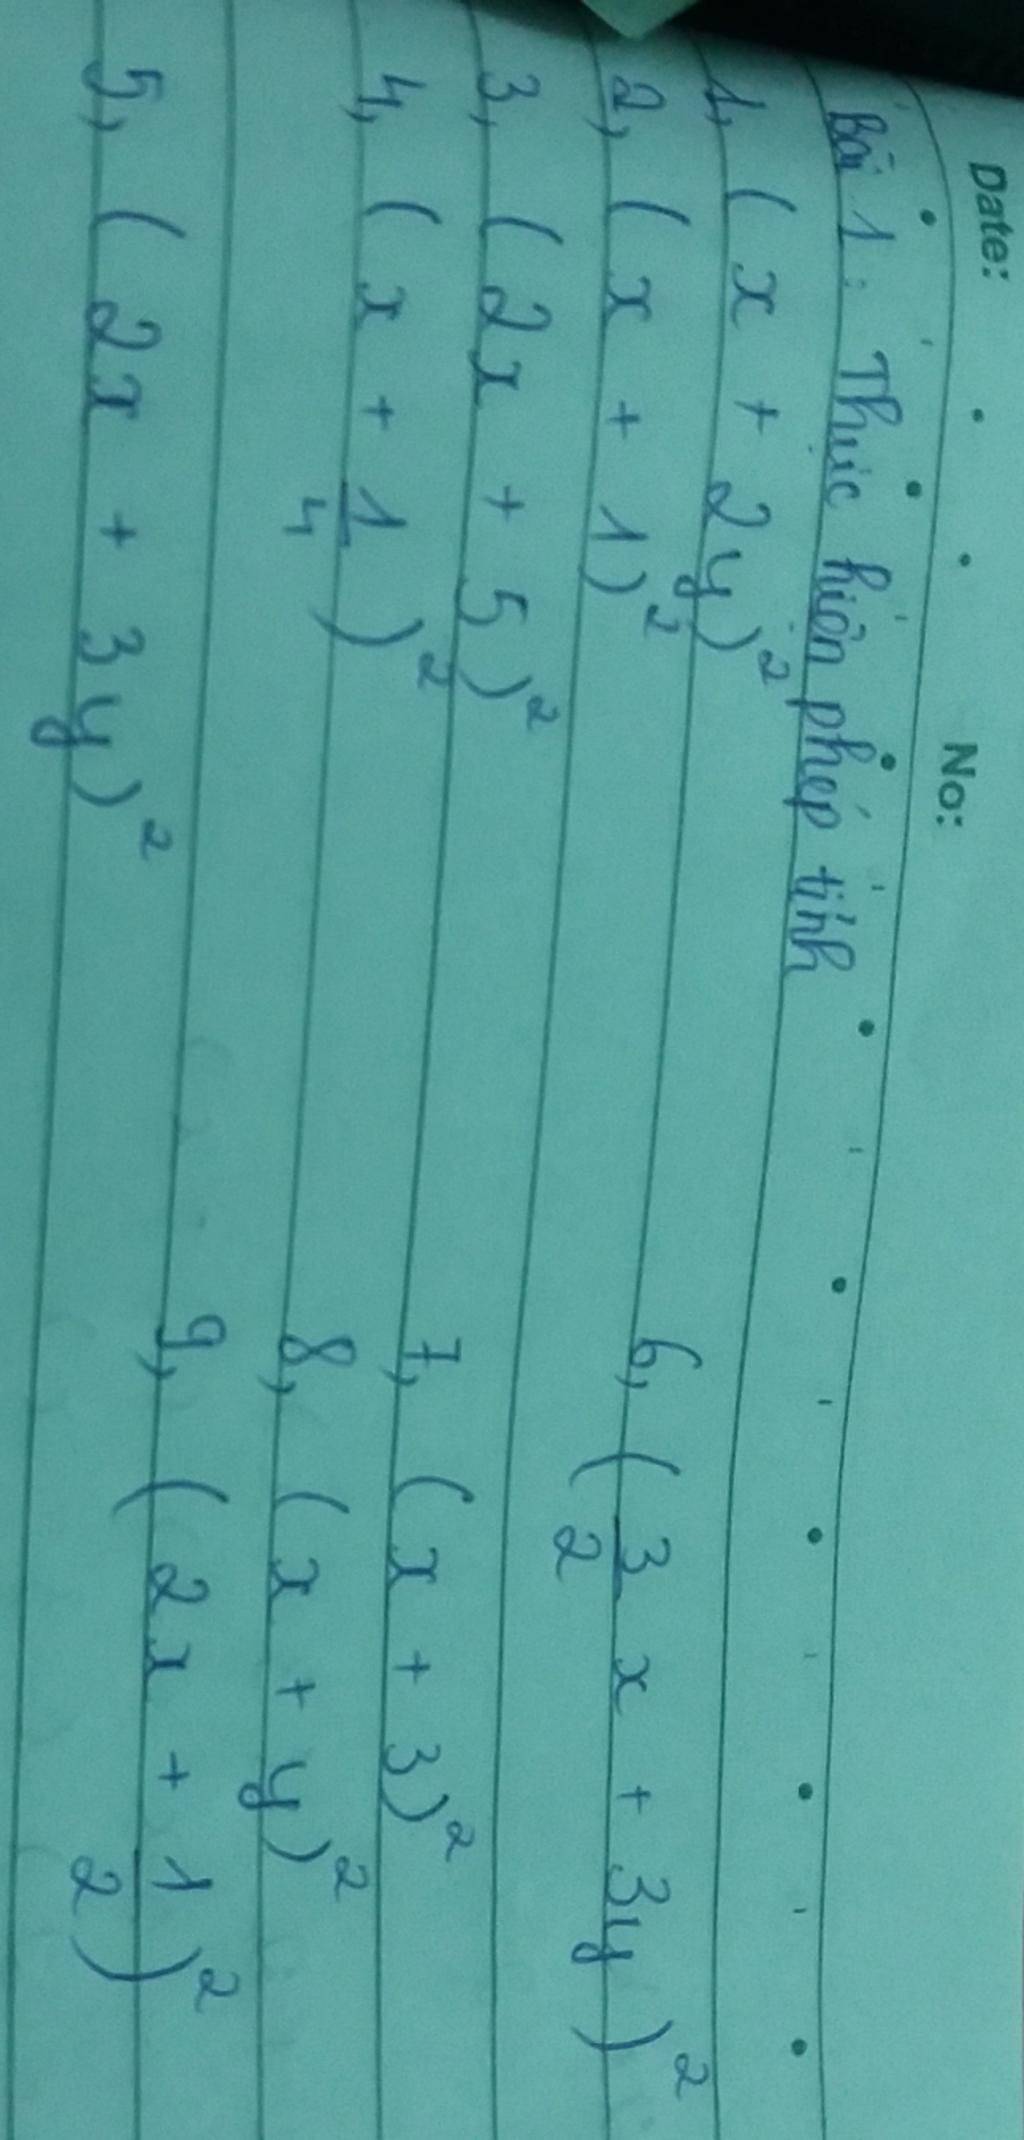 Date: No:
Bài 1: Thực hiện phép tính
1, (x + 2y)²
2, (x + 1)²
3, (2x + 5)²
4, (x + 1/4)²
5, (2x + 3y)²
6, (3/2 x + 3y)²
7, (x + 3)²
8, (x + y)²
9, (2x + 1/2)²